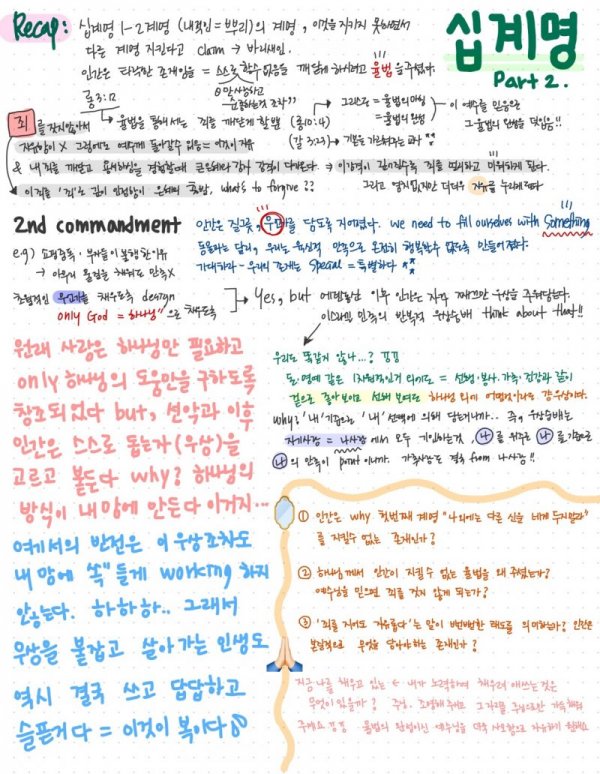 Recap: 십계명 1-2계명 (내적인 = 뿌리)의 계명, 이것을 지키지 못하면서
다른 계명 지킨다고 claim → 바리새인.
인간은 타락한 존재임을 = 스스로 할수없음을 깨닫게 하시려고 율법을 주셨다.
십계명
Part 2.
죄를 갖지않아서
율법을 통해서는 죄를 깨닫게 할뿐
(롬10:4)
그리스도 = 율법의 마침
= 율법의 완성
이 예수를 믿음은
그 율법의 완성을 덧입음!!
(갈 3:23)
& 내 죄를 깨닫고 용서하심을 경험할때
what's to forgive??
2nd commandment
인간은 질그릇, 무언가를 담도록 지어졌다. we need to fill ourselves with Something
동물과는 달리, 우리는 육신적 만족으로 온전히 행복할수 없도록 만들어졌다.
우리의 존재는 special = 특별하다
e.g) 쇼핑중독 · 부자들이 불행한이유
→ 아무리 물질을 채워도 만족X
초월적인 무언가를 채우도록 design
only God = 하나님"으로 채우도록
Yes, but 에덴동산 이후 인간은 자꾸 깨즈만 우상을 추워담는다.
이스라엘 민족의 반복적 우상숭배 think about that!!
원래 사랑은 하나님만 필요하고
only 하나님의 도움만을 구하도록
창조되었다 but, 선악과 이후
인간은 스스로 돕는자(우상)을
고르고 붙든다 why? 하나님의
방식이 내 맘에 안든다 이거지...
우리도 똑같지 않나...? 끙끙
돈·명예 같은 1차원적인거 외에도 = 선행·봉사·가족·건강과 같이
겉으로 좋아보이고 선해 보여도 하나님 외에 어떤것이라도 다 우상이다.
why? '내'기준으로 '내' 선택에 의해 담는거니까.. 즉, 우상숭배는
자기사랑 = 나사랑 에서 모두 기인하는것, 나를 위주로 나를 기준으로
나의 만족이 point이니까. 가족사랑도 결국 from 나사랑!!
여기서의 반전은 이 우상조차도
내 맘에 쏙" 들게 working 하지
않는다. 하하하.. 그래서
우상을 붙잡고 살아가는 인생도
역시 결국 쓰고 답답하고
슬픈거다 = 이것이 복이다
① 인간은 why 첫번째 계명 "나외에는 다른 신을 네게 두지말라"
를 지킬수 없는 존재인가?
② 하나님께서 인간이 지킬수 없는 율법을 왜 주셨는가?
예수님을 믿으면 죄를 짓지 않게 되는가?
③ '죄를 지어도 자유롭다'는 말이 뻔뻔한 태도를 의미하는가? 인간은
본질적으로 무엇을 담아야하는 존재인가?
지금 나를 채우고 있는 ← 내가 노력하며 채우려 애쓰는 것은
무엇이 있을까? 주님. 조명해 주세요 그 자리를 주님으로만 가득채워
주세요 끙끙 율법의 완성이신 예수님을 더욱 사모함으로 자유하기 원해요